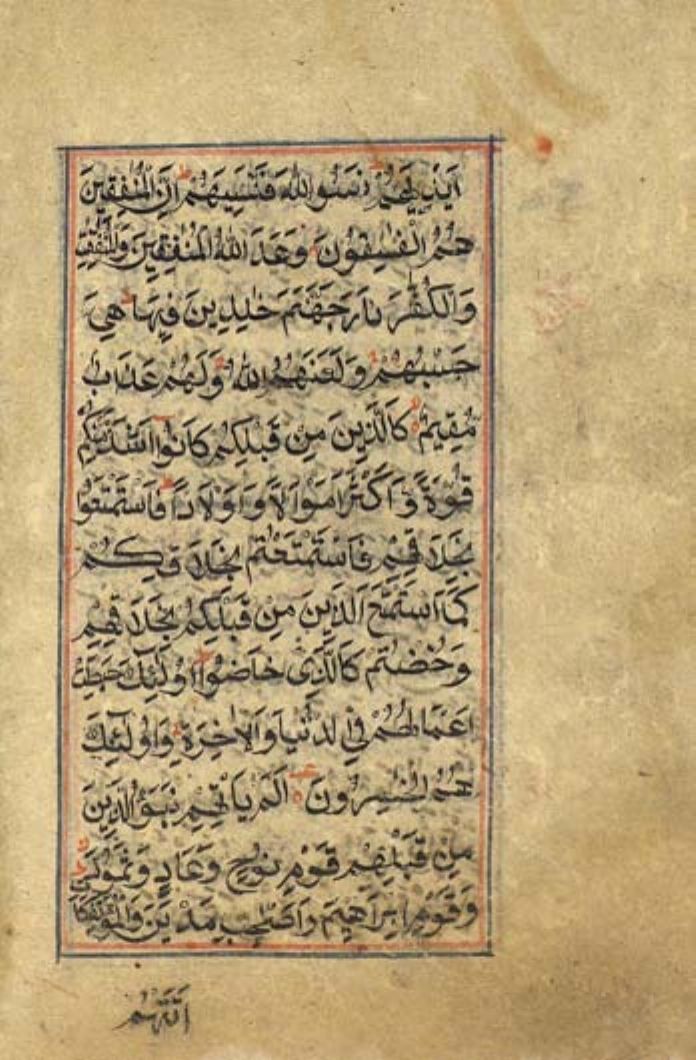 اَيْدِيَهُمْ ط نَسُوا اللّٰهَ فَنَسِيَهُمْ ط اِنَّ الْمُنٰفِقِيْنَ
هُمُ الْفٰسِقُوْنَ وَعَدَ اللّٰهُ الْمُنٰفِقِيْنَ وَالْمُنٰفِقٰتِ
وَالْكُفَّارَ نَارَ جَهَنَّمَ خٰلِدِيْنَ فِيْهَا ط هِيَ
حَسْبُهُمْ وَلَعَنَهُمُ اللّٰهُ وَلَهُمْ عَذَابٌ
مُقِيْمٌ كَالَّذِيْنَ مِنْ قَبْلِكُمْ كَانُوْا اَشَدَّ مِنْكُمْ
قُوَّةً وَّاَكْثَرَ اَمْوَالًا وَّاَوْلَادًا ط فَاسْتَمْتَعُوْا
بِخَلَاقِهِمْ فَاسْتَمْتَعْتُمْ بِخَلَاقِكُمْ
كَمَا اسْتَمْتَعَ الَّذِيْنَ مِنْ قَبْلِكُمْ بِخَلَاقِهِمْ
وَخُضْتُمْ كَالَّذِيْ خَاضُوْا ط اُولٰٓئِكَ حَبِطَتْ
اَعْمَالُهُمْ فِي الدُّنْيَا وَالْاٰخِرَةِ وَاُولٰٓئِكَ
هُمُ الْخٰسِرُوْنَ اَلَمْ يَاْتِهِمْ نَبَؤُا الَّذِيْنَ
مِنْ قَبْلِهِمْ قَوْمِ نُوْحٍ وَعَادٍ وَثَمُوْدَ
وَقَوْمِ اِبْرٰهِيْمَ وَاَصْحٰبِ مَدْيَنَ وَالْمُؤْتَفِكَاتِ
اَتَتْهُمْ